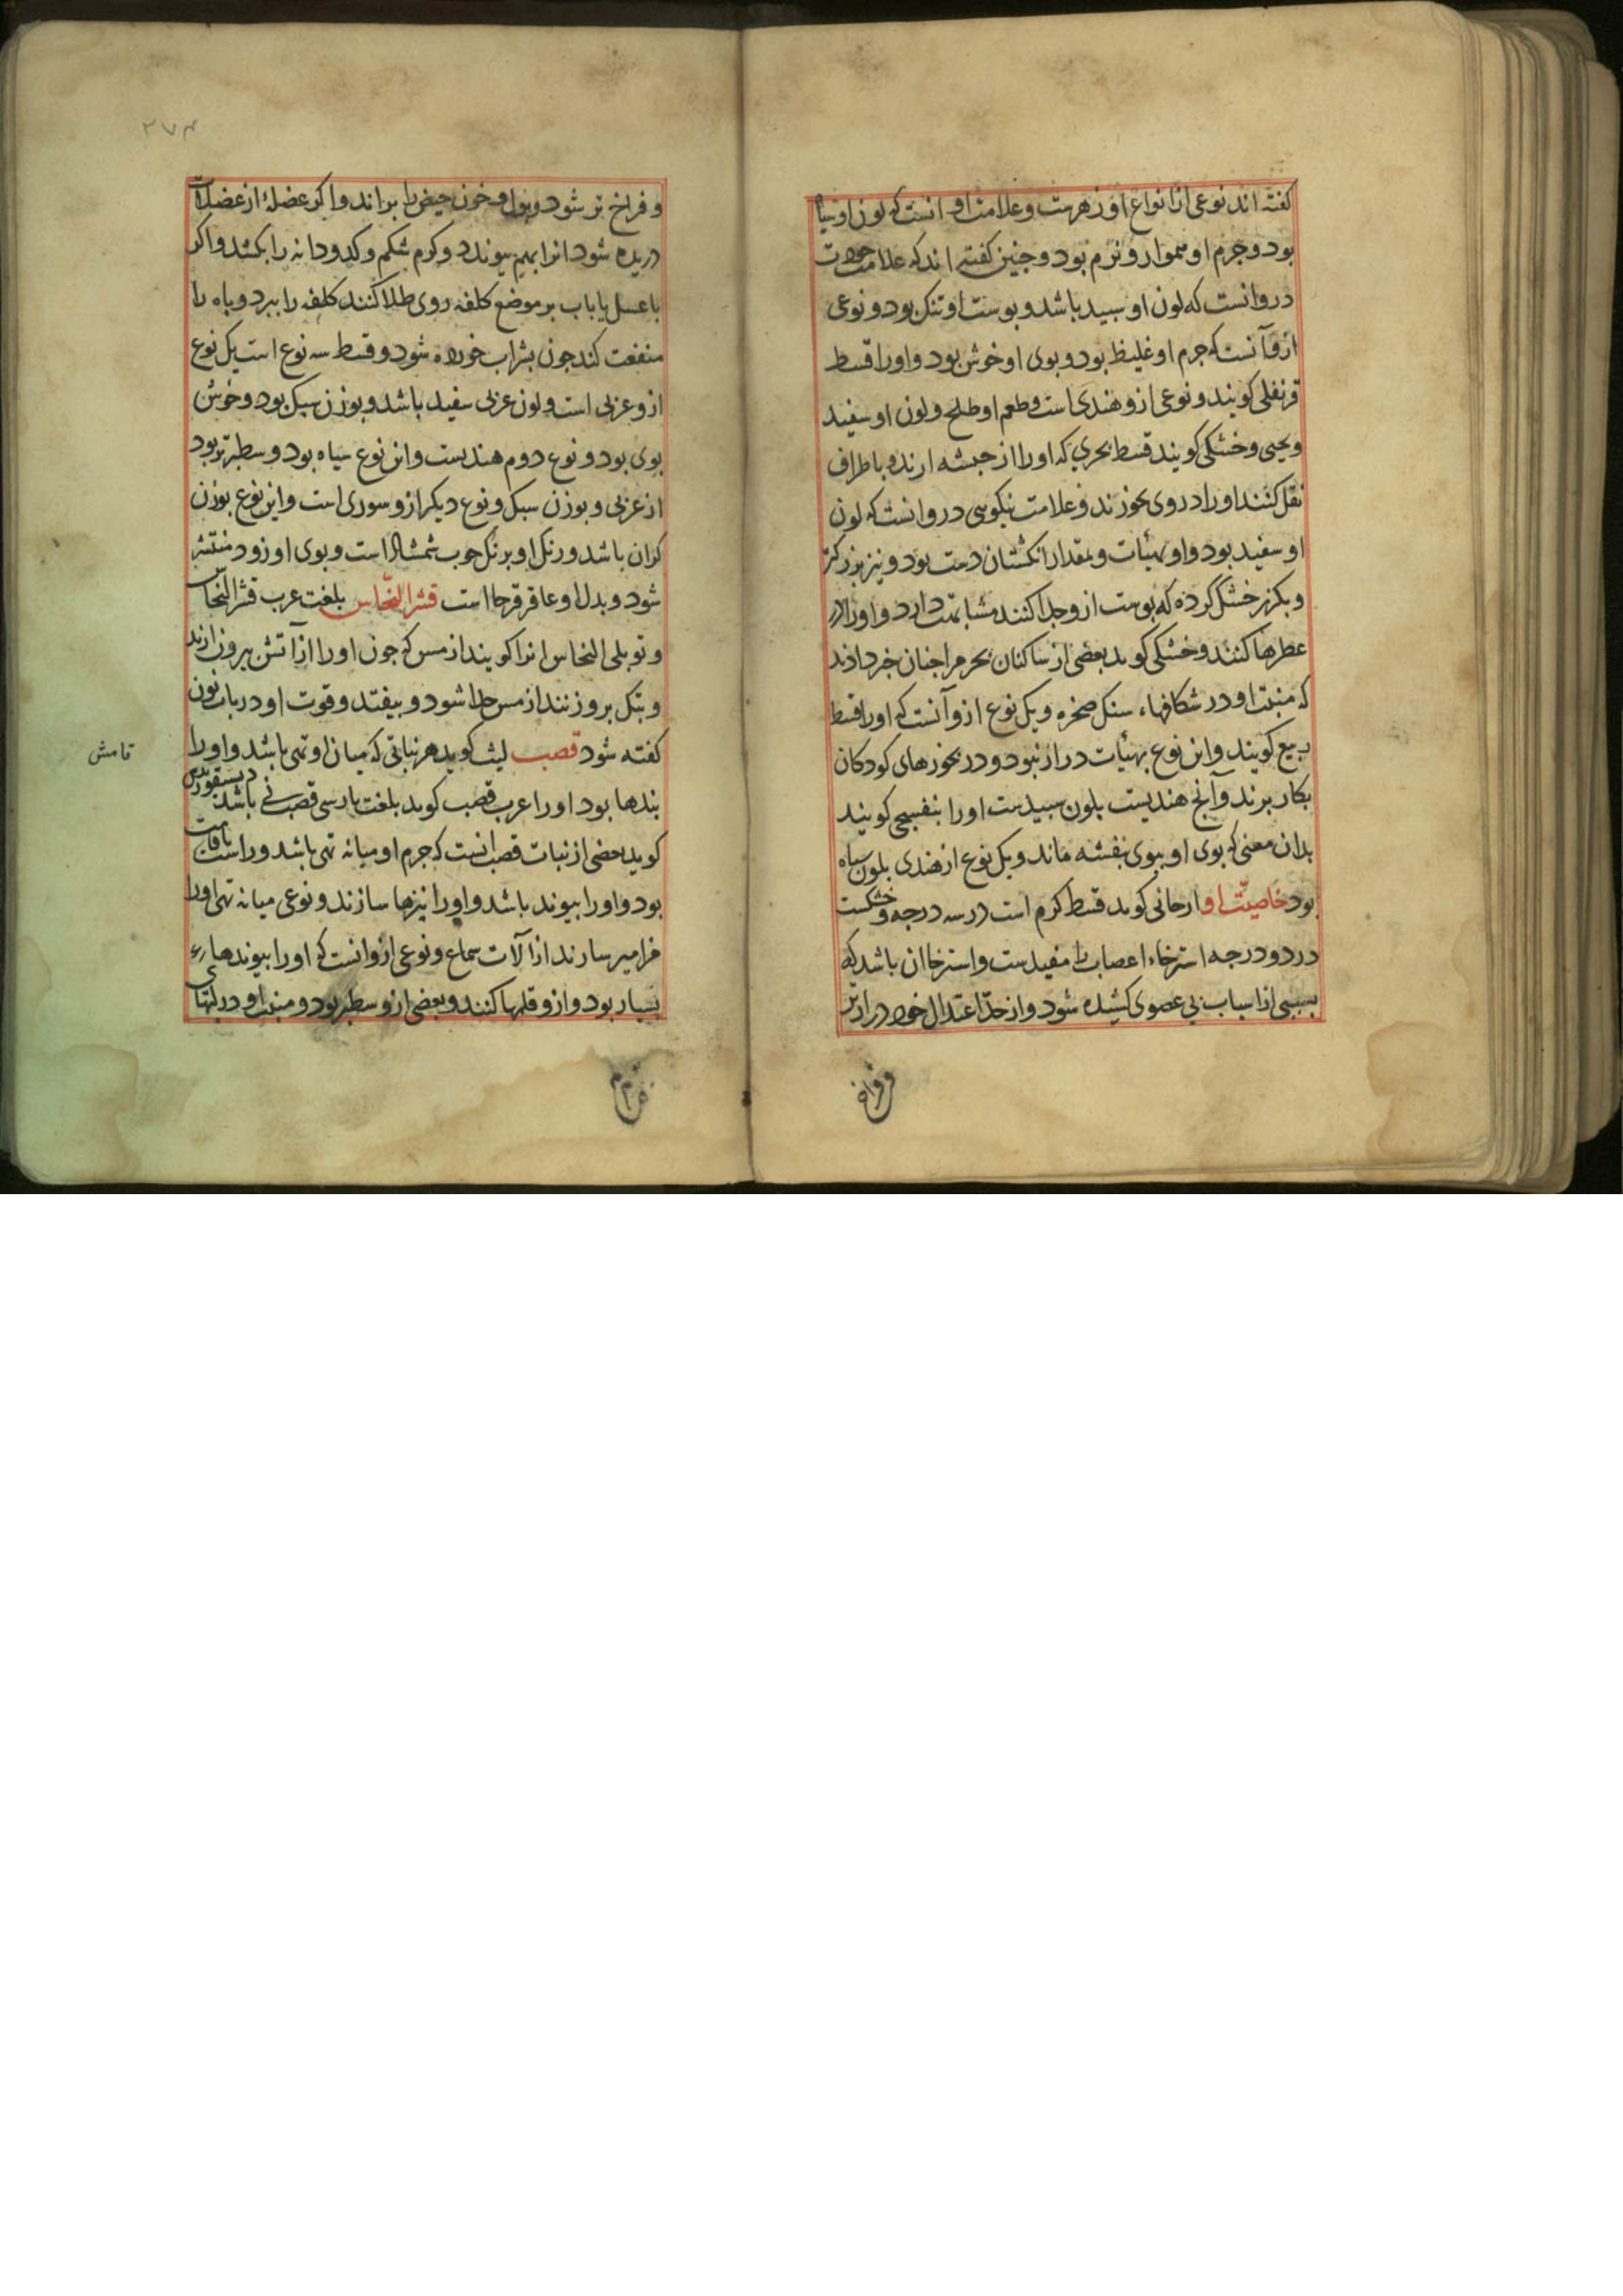 گفته اند نوعی از انواع او زهرست و علامت او انست که لون او سیاه
بود و جرم او هموار و نرم بود و جنین گفته اند که علامت جودت
درو انست که لون او سبید باشد و بوست او تنک بود و نوعی
ازو آنست که جرم او غلیظ بود و بوی او خوش بود و اورا قسط
قرنفلی کویند و نوعی ازو هندی است و طعم او طلخ و لون او سفید
و یحیی و خشکی کویند قسط بحری که او را از حبشه ارند و باطراف
نقل کنند او را در روی بخورند و علامت نیکویی درو انست که لون
او سفید بود و او بهیئات و بمقدار انکشتان دست بود و نیز بزرکتر
و بکزر خشک کرده که بوست ازو جدا کنند مشابهت دارد و او را در
عطرها کنند و خشکی کوید بعضی از ساکنان بحر مرا جنان خبر دادند
که منبت او در شکافهاء سنک صخره و یک نوع ازو آنست که او را قسط
ربیع کویند و این نوع بهیئات دراز نبود و در بخورهای کودکان
بکار برند و آنج هندیست بلون سبیدست او را بنفسجی کویند
بدان معنی که بوی او ببوی بنفشه ماند و یک نوع از هندی بلون سیاه
بود خاصیت او ارجانی کوید قسط کرم است در سه درجه و خشکست
در دو درجه استرخاء اعصاب را مفیدست و استرخا ان باشد که
بسببی از اسباب بی عضوی کشیده شود و از حد اعتدال خود درازتر
و فراخ
۲۷۴
و فراخ تر شود و بول و خون حیض را براند و اکر عضلهٔ از عضلات
دریده شود انرا بهم بیوندد و کرم شکم و کدودانه را بکشد و اکر
با عسل یا باب بر موضع کلفه روی طلا کنند کلفه را ببرد و باه را
منفعت کند جون بشراب خورده شود و قسط سه نوع است یک نوع
ازو عربی است و لون عربی سفید باشد و بوزن سبک بود و خوش
بوی بود و نوع دوم هندیست و این نوع سیاه بود و سطبرتر بود
از عربی و بوزن سبک و نوع دیکر ازو سوری است و این نوع بوزن
کران باشد و رنک او برنک جوب شمشاد است و بوی او زود منتشر
شود و بدل او عاقرقرحا است قشر النحاس بلغت عرب قشر النحاس
و توبلی النحاس انرا کویند از مس که جون او را از آتش بیرون ارند
و بتک برو زنند از مس جدا شود و بیفتد و قوت او در باب نون
کفته شود قصب لیث کوید هر نباتی که میان او تهی باشد و او را
قامش
بندها بود او را عرب قصب کوید بلغت بارسی قصب نی باشد دیسقوریدس
کوید بعضی از نبات قصب انست که جرم او میانه تهی باشد و راست قامت
بود و او را بیوند باشد و او را نیزها سازند و نوعی میانه تهی اورا
مزامیر سازند از آلات سماع و نوعی ازو انست که او را بیوندهاء
بسیار بود و ازو قلمها کنند و بعضی ازو سطبر بود و منبت او در لبهای